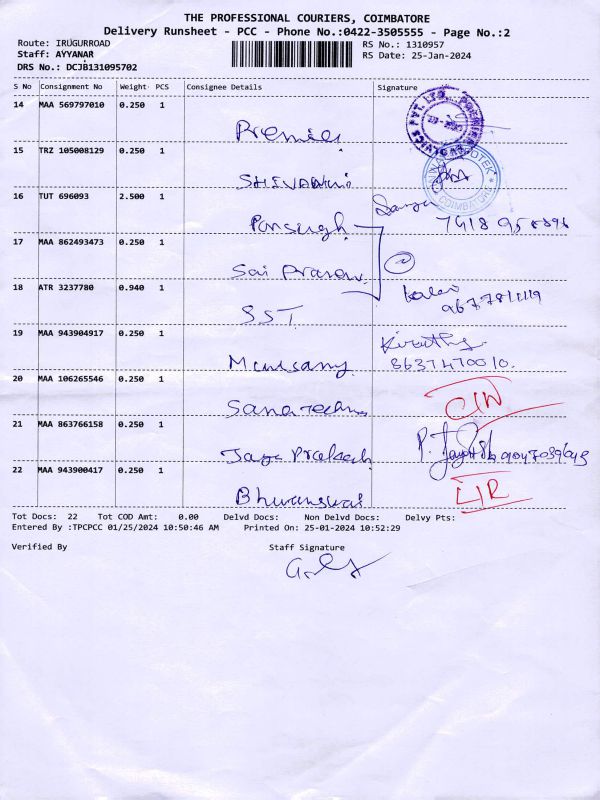 THE PROFESSIONAL COURIERS, COIMBATORE
Delivery Runsheet - PCC - Phone No.:0422-3505555 - Page No.:2
Route: IRUGURROAD
RS No.: 1310957
Staff: AYYANAR
RS Date: 25-Jan-2024
DRS No.: DCJB131095702
S No Consignment No Weight PCS Consignee Details Signature
14 MAA 569797010 0.250 1
Premier
15 TRZ 105008129 0.250 1
COIMBATORE
16 TUT 696093 2.500 1
Ponsingh
17 MAA 862493473 0.250 1
2
Sai
18 ATR 3237780 0.940 1
SST
19 MAA 943904917 0.250 1
Kiruthi
8637470010.
20 MAA 106265546 0.250 1
Sana Techno
21 MAA 863766158 0.250 1
Jaya Prakash
22 MAA 943900417 0.250 1
Tot Docs: 22 Tot COD Amt: 0.00 Delvd Docs: Non Delvd Docs: Delvy Pts:
Entered By :TPCPCC 01/25/2024 10:50:46 AM Printed On: 25-01-2024 10:52:29
Verified By Staff Signature